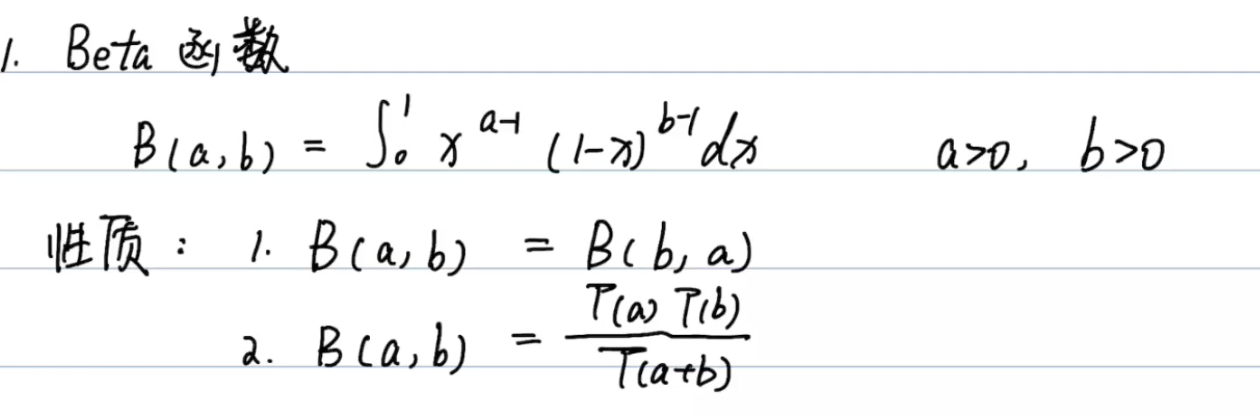 1. Beta 函数
B(a,b) = ∫₀¹ x^{a-1} (1-x)^{b-1} dx a>0, b>0
性质: 1. B(a,b) = B(b,a)
2. B(a,b) = Γ(a) Γ(b) / Γ(a+b)